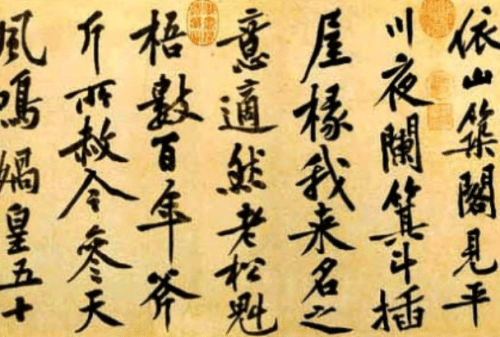 依山築閣見平
川夜闌箕斗插
屋椽我来名之
意適然老松魁
梧數百年斧
斤所赦令參天
風鳴媧皇五十